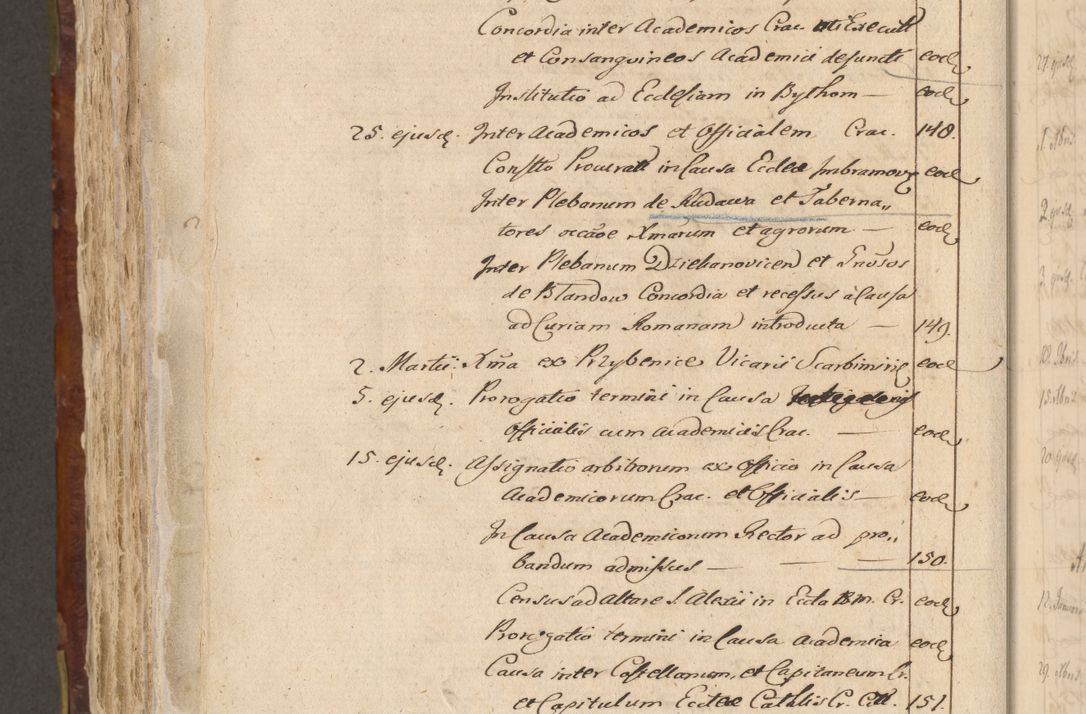 Concordia inter Academicos Crac. uti Execut
et Consangvineos Academici defuncti eod
Institutio ad Ecclesiam in Bythom — eod
25. ejusd. Inter Academicos et Officialem Crac. 148.
Constto Procurat in Causa Eccles Imbramov eod
Inter Plebanum de Rudawa et Taberna„
tores occãoe Xmarum et agrorum — eod
Inter Plebanum Dziekanovicen et Gnosos
de Blandow Concordia et recessus a Causa
ad Curiam Romanam introducta — 149.
2. Martii. Xma ex Przybenice Vicariis Scarbimiri eod
5. ejusd. Prorogatio termini in Causa
Officialis cum Academicis Crac. — eod
15. ejusd. Assignatio arbitrorum ex Officio in Causa
Academicorum Crac. et Officialis — eod
In Causa Academicorum Rector ad pro„
bandum admissus — — — 150.
Census ad altare S. Alexii in Eccla B.M. Cr. eod
Prorogatio termini in Causa Academica eod
Causa inter Castellanum, et Capitaneum Cr.
et Capitulum Eccles Cathlis Cr. 151.